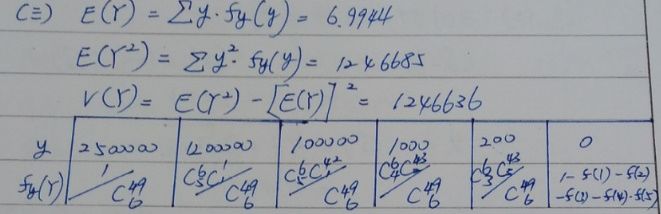 (三) E(Y) = Σ y · fy(y) = 6.9944
E(Y²) = Σ y² · fy(y) = 1246685
V(Y) = E(Y²) - [E(Y)]² = 1246636
y 2500000 1200000 100000 1000 200 0
fy(Y) 1/C⁴⁹₆ C⁶₅C¹₁/C⁴⁹₆ C⁶₅C⁴²₁/C⁴⁹₆ C⁶₄C⁴³₂/C⁴⁹₆ C⁶₃C⁴³₃/C⁴⁹₆ 1-f(1)-f(2)
-f(3)-f(4)-f(5)